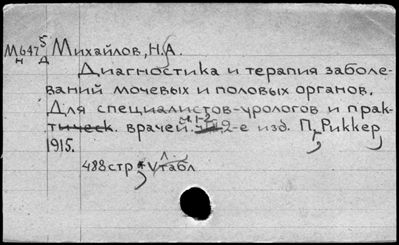 М647 5 Михайлов, Н.А.
н д
Диагностика и терапия заболе-
ваний мочевых и половых органов.
Для специалистов-урологов и прак-
тическ. врачей. ч.1-2 2-е изд. П, Риккер
1915.
488стр*V табл